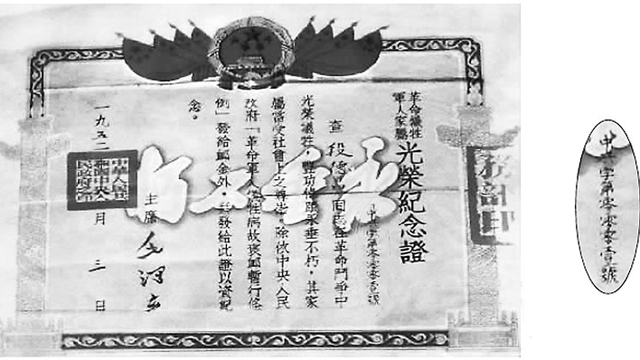 革命犧牲
軍人家屬
光榮紀念證
字第零零零壹號
查段德昌同志在革命鬥爭中
光榮犧牲,豐功偉績永垂不朽,其家
屬當受社會上之尊崇。除依中央人民
政府「革命軍人犧牲病故褒恤暫行條
例」發給卹金外,並發給此證以資紀
念。
主席
毛澤東
一九五二年 月 三 日
中華人民
共和國中央
人民政府之印
務部印
字第零零零壹號